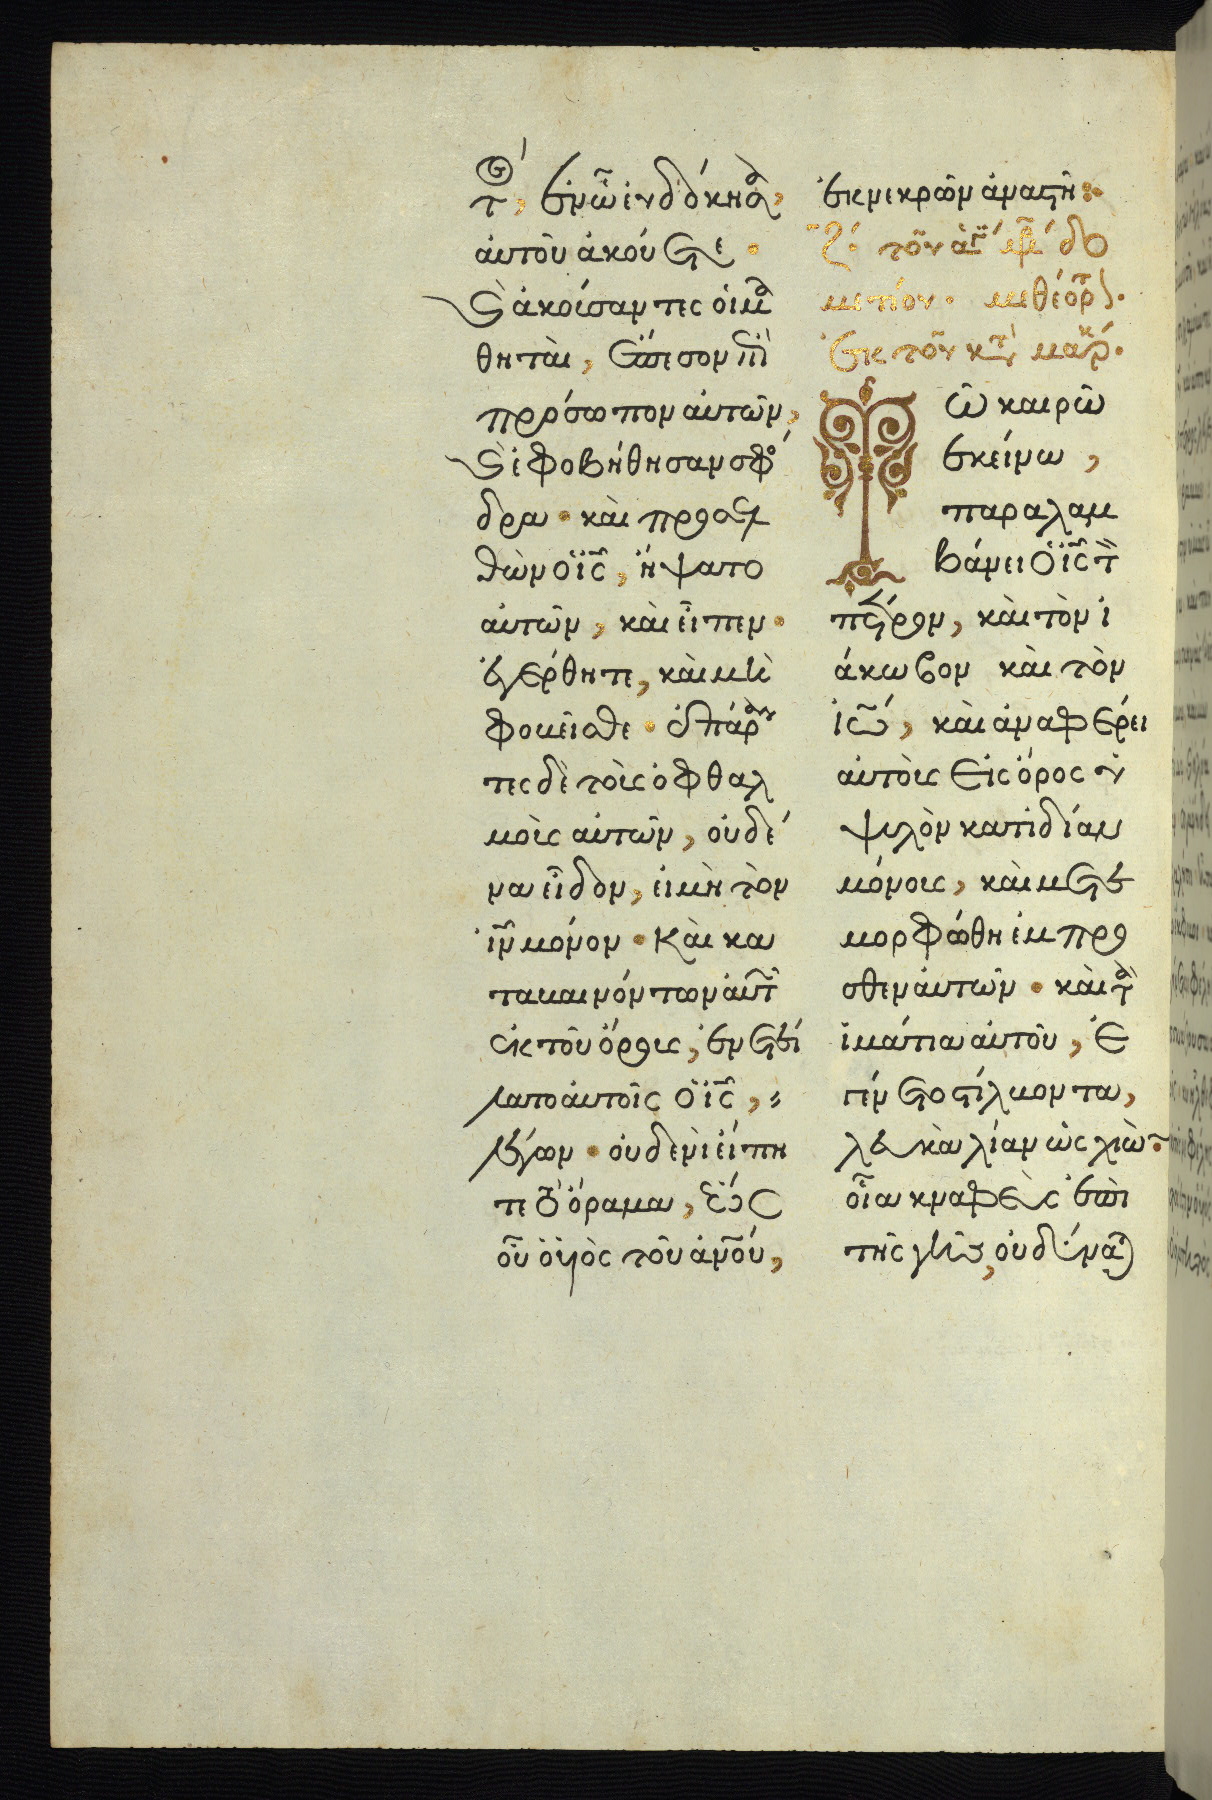 τ, ἐν ᾧ εὐδόκησα,
αὐτοῦ ἀκούετε.
Καὶ ἀκούσαντες οἱ μα
θηταὶ, ἔπεσον ἐπὶ
πρόσωπον αὐτῶν,
καὶ ἐφοβήθησαν σφό
δρα. καὶ προσελ
θὼν ὁ ἰς, ἥψατο
αὐτῶν, καὶ εἶπεν.
ἐγέρθητε, καὶ μὴ
φοβεῖσθε. ἐπάραν
τες δὲ τοὺς ὀφθαλ
μοὺς αὐτῶν, οὐδέ
να εἶδον, εἰ μὴ τὸν
ἰν μόνον. Καὶ κα
ταβαινόντων αὐτῶν
ἐκ τοῦ ὄρους, ἐνετεί
λατο αὐτοῖς ὁ ἰς,
λέγων. οὐδενὶ εἴπη
τε τὸ ὅραμα, ἕως
οὗ ὁ υἱὸς τοῦ ἀνου,
ἐκ νεκρῶν ἀναστῆ:
μετίον.
ἐκ τοῦ κτ μαρκ.
Τῶ καιρῶ
ἐκείνω,
παραλαμ
βάνει ὁ ἰς τὸν
πέτρον, καὶ τὸν ἰ
άκωβον καὶ τὸν
ἰω, καὶ ἀναφέρει
αὐτοὺς εἰς ὄρος ὑ
ψηλὸν κατιδίαν
μόνους, καὶ μετε
μορφώθη ἔμπρο
σθεν αὐτῶν. καὶ τὰ
ἱμάτια αὐτοῦ, ἐ
γένετο στίλβοντα,
λευκὰ λίαν ὡς χιὼν.
οἷα κναφεὺς ἐπὶ
τῆς γῆς, οὐ δύνα